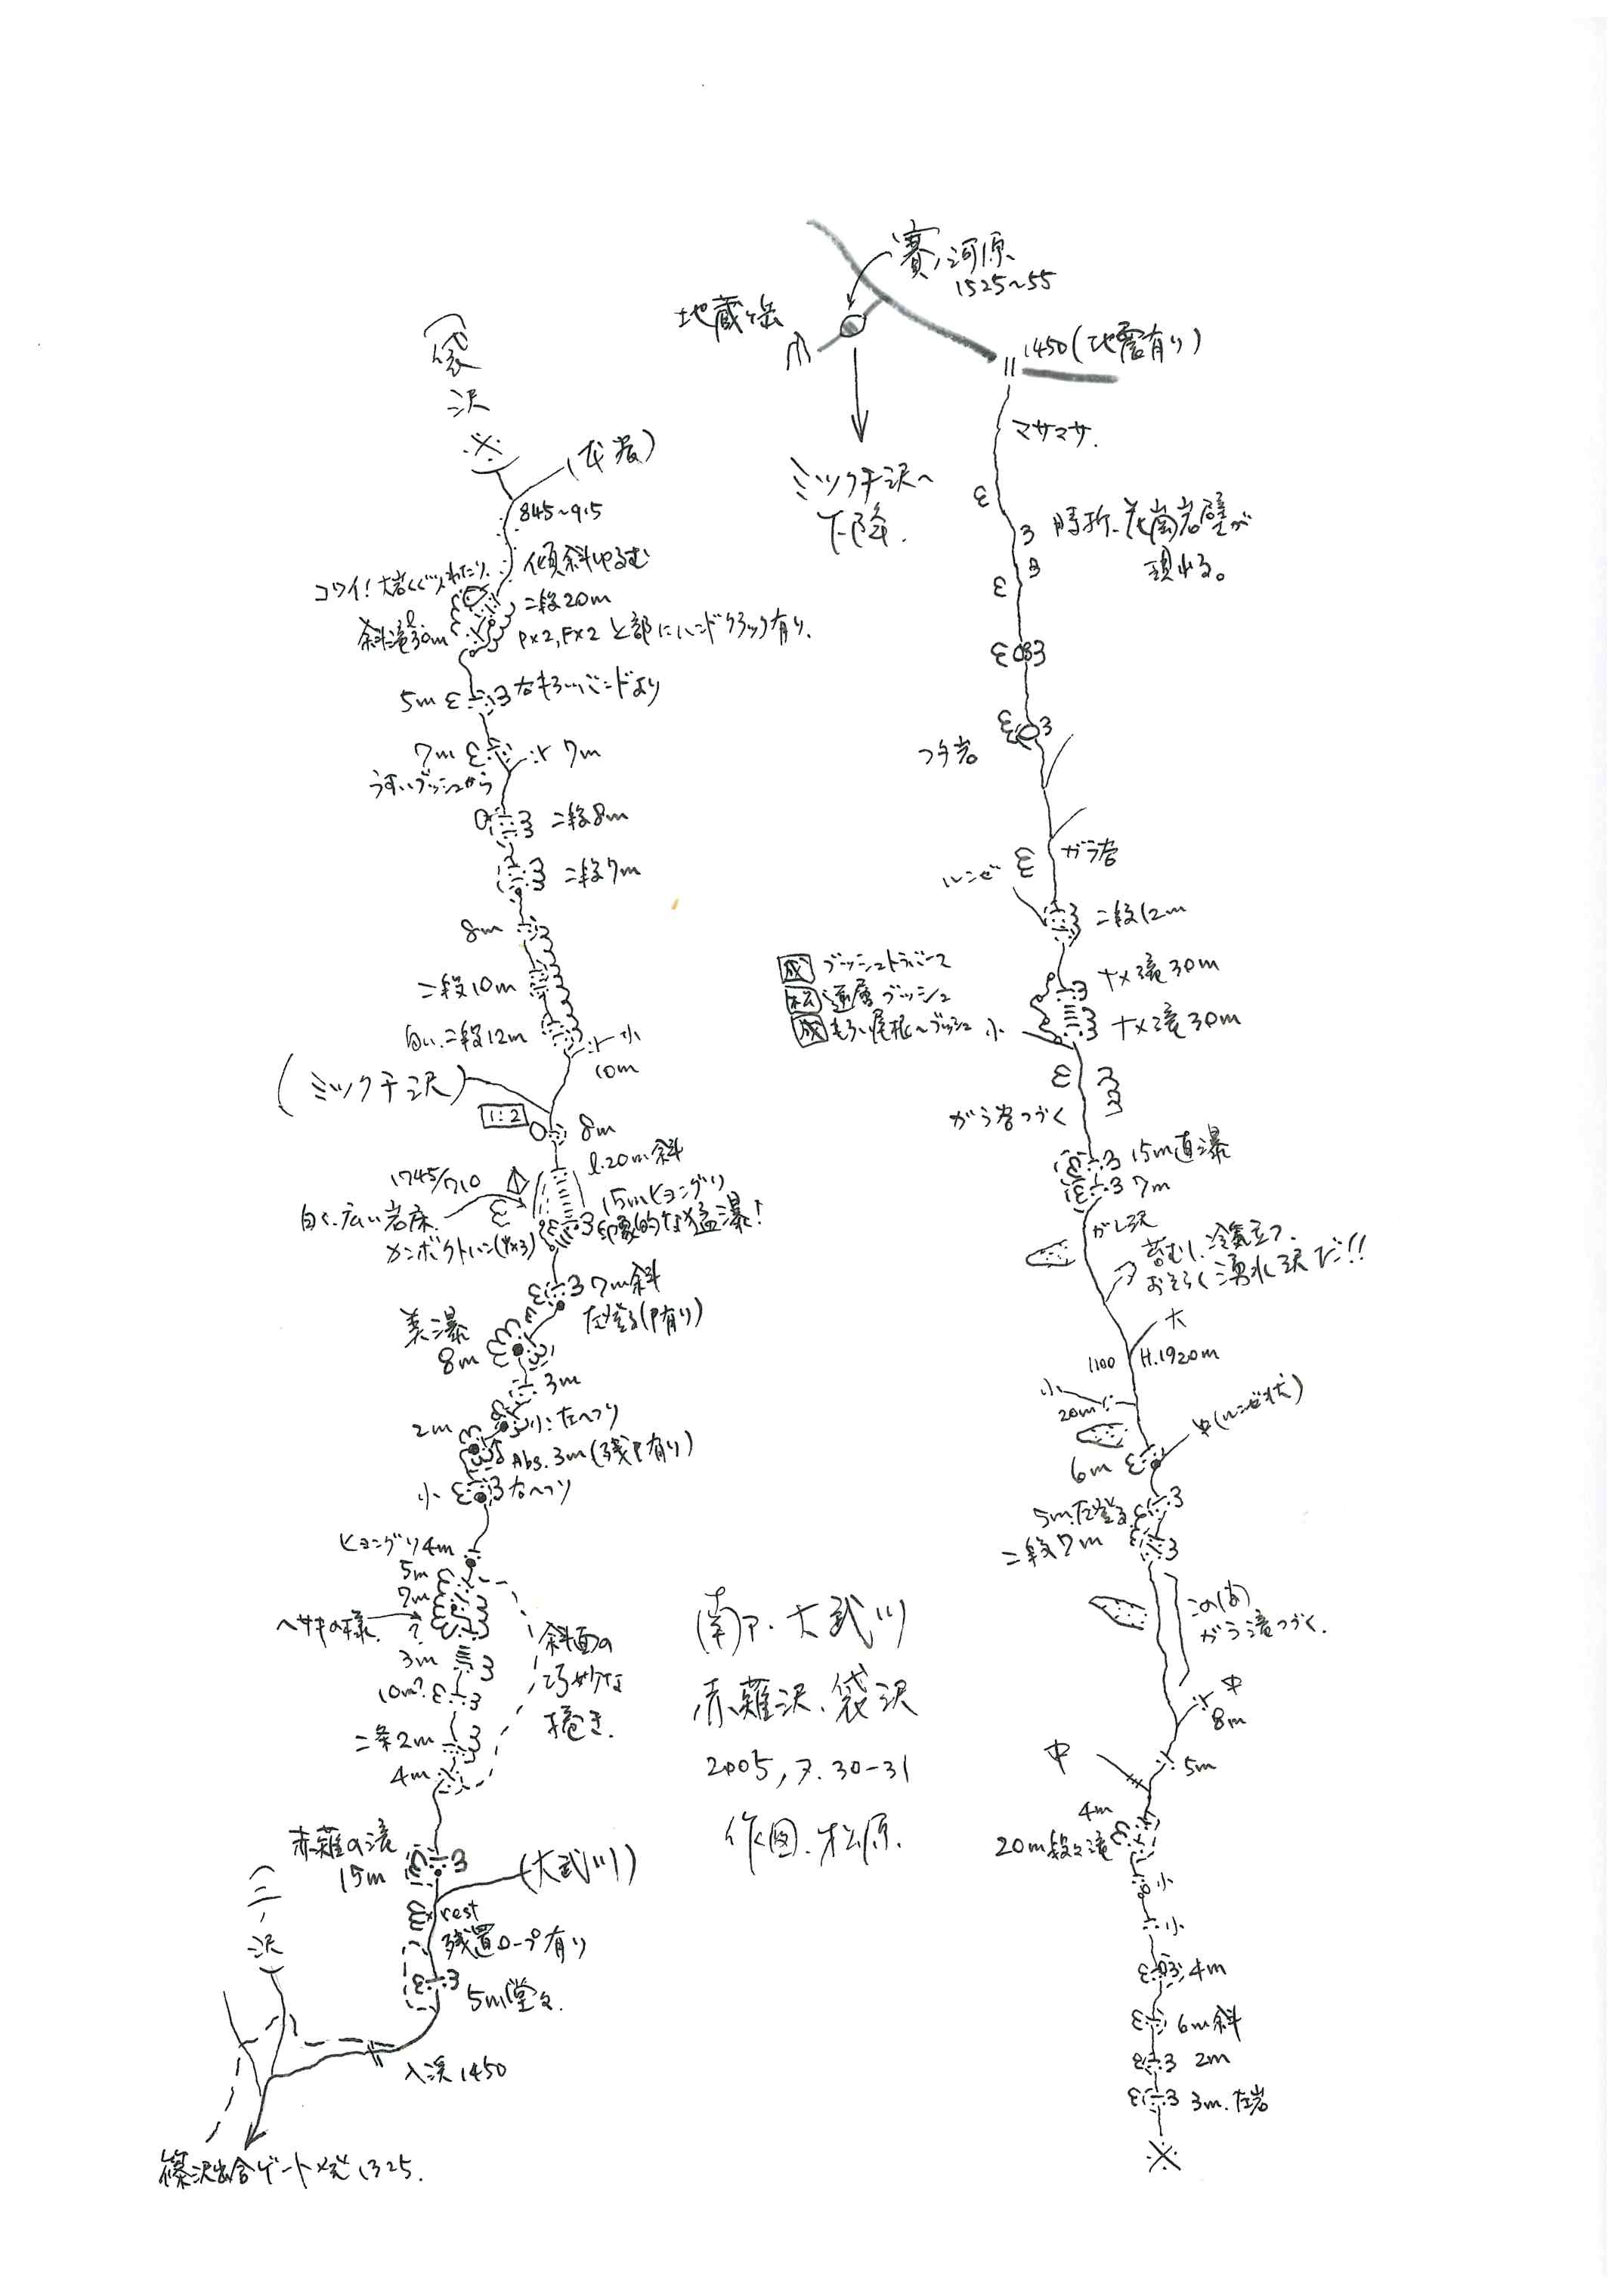 賽ノ河原
1525~55
地蔵ヶ岳
1450(地震有り)
マサマサ.
ミツクチ沢へ
下降.
時折.花崗岩壁が
現れる。
ガラ岩
ルンゼ
二段12m
ナメ滝30m
ナメ滝30m
成 ブッシュトラバース
松 逆層ブッシュ
成 もろい尾根~ブッシュ
小
がう岩つづく
15m直瀑
7m
ガレ沢
苔むし、冷気立つ.
おそらく湧水沢だ!!
大
1100
H.1920m
小
20m
中(ルンゼ状)
6m
5m.左登る
二段7m
この(あ)
がう滝つづく.
中
8m
5m
中
4m
20m段々滝
小
小
4m
6m斜
2m
3m.左岩
(袋
沢
845~915
傾斜ゆるむ
二段20m
斜滝30m
P×2,F×2 上部にハンドクラック有り.
5m
右もろいバンドより
7m
7m
うすいブッシュから
二段8m
二段7m
8m
二段10m
白い.二段12m
小
10m
(ミツクチ沢)
1:2
8m
l.20m斜
1745/710
15mヒョングリ
白く.広い岩床.
印象的な猛瀑!
7m斜
左登る(P有り)
美瀑
8m
3m
2m
小:左へつり
Abs.3m(残P有り)
小
右へつり
ヒョングリ4m
5m
7m
?
3m
10m?
二条2m
4m
斜面の
巧妙な
捲き.
赤薙の滝
15m
(大武川)
rest
残置ロープ有り
5m堂々.
(二ノ沢)
入渓1450
篠沢出合ゲートメデ1325.
南ア.大武川
赤薙沢.袋沢
2005,7.30-31
作図.松原.